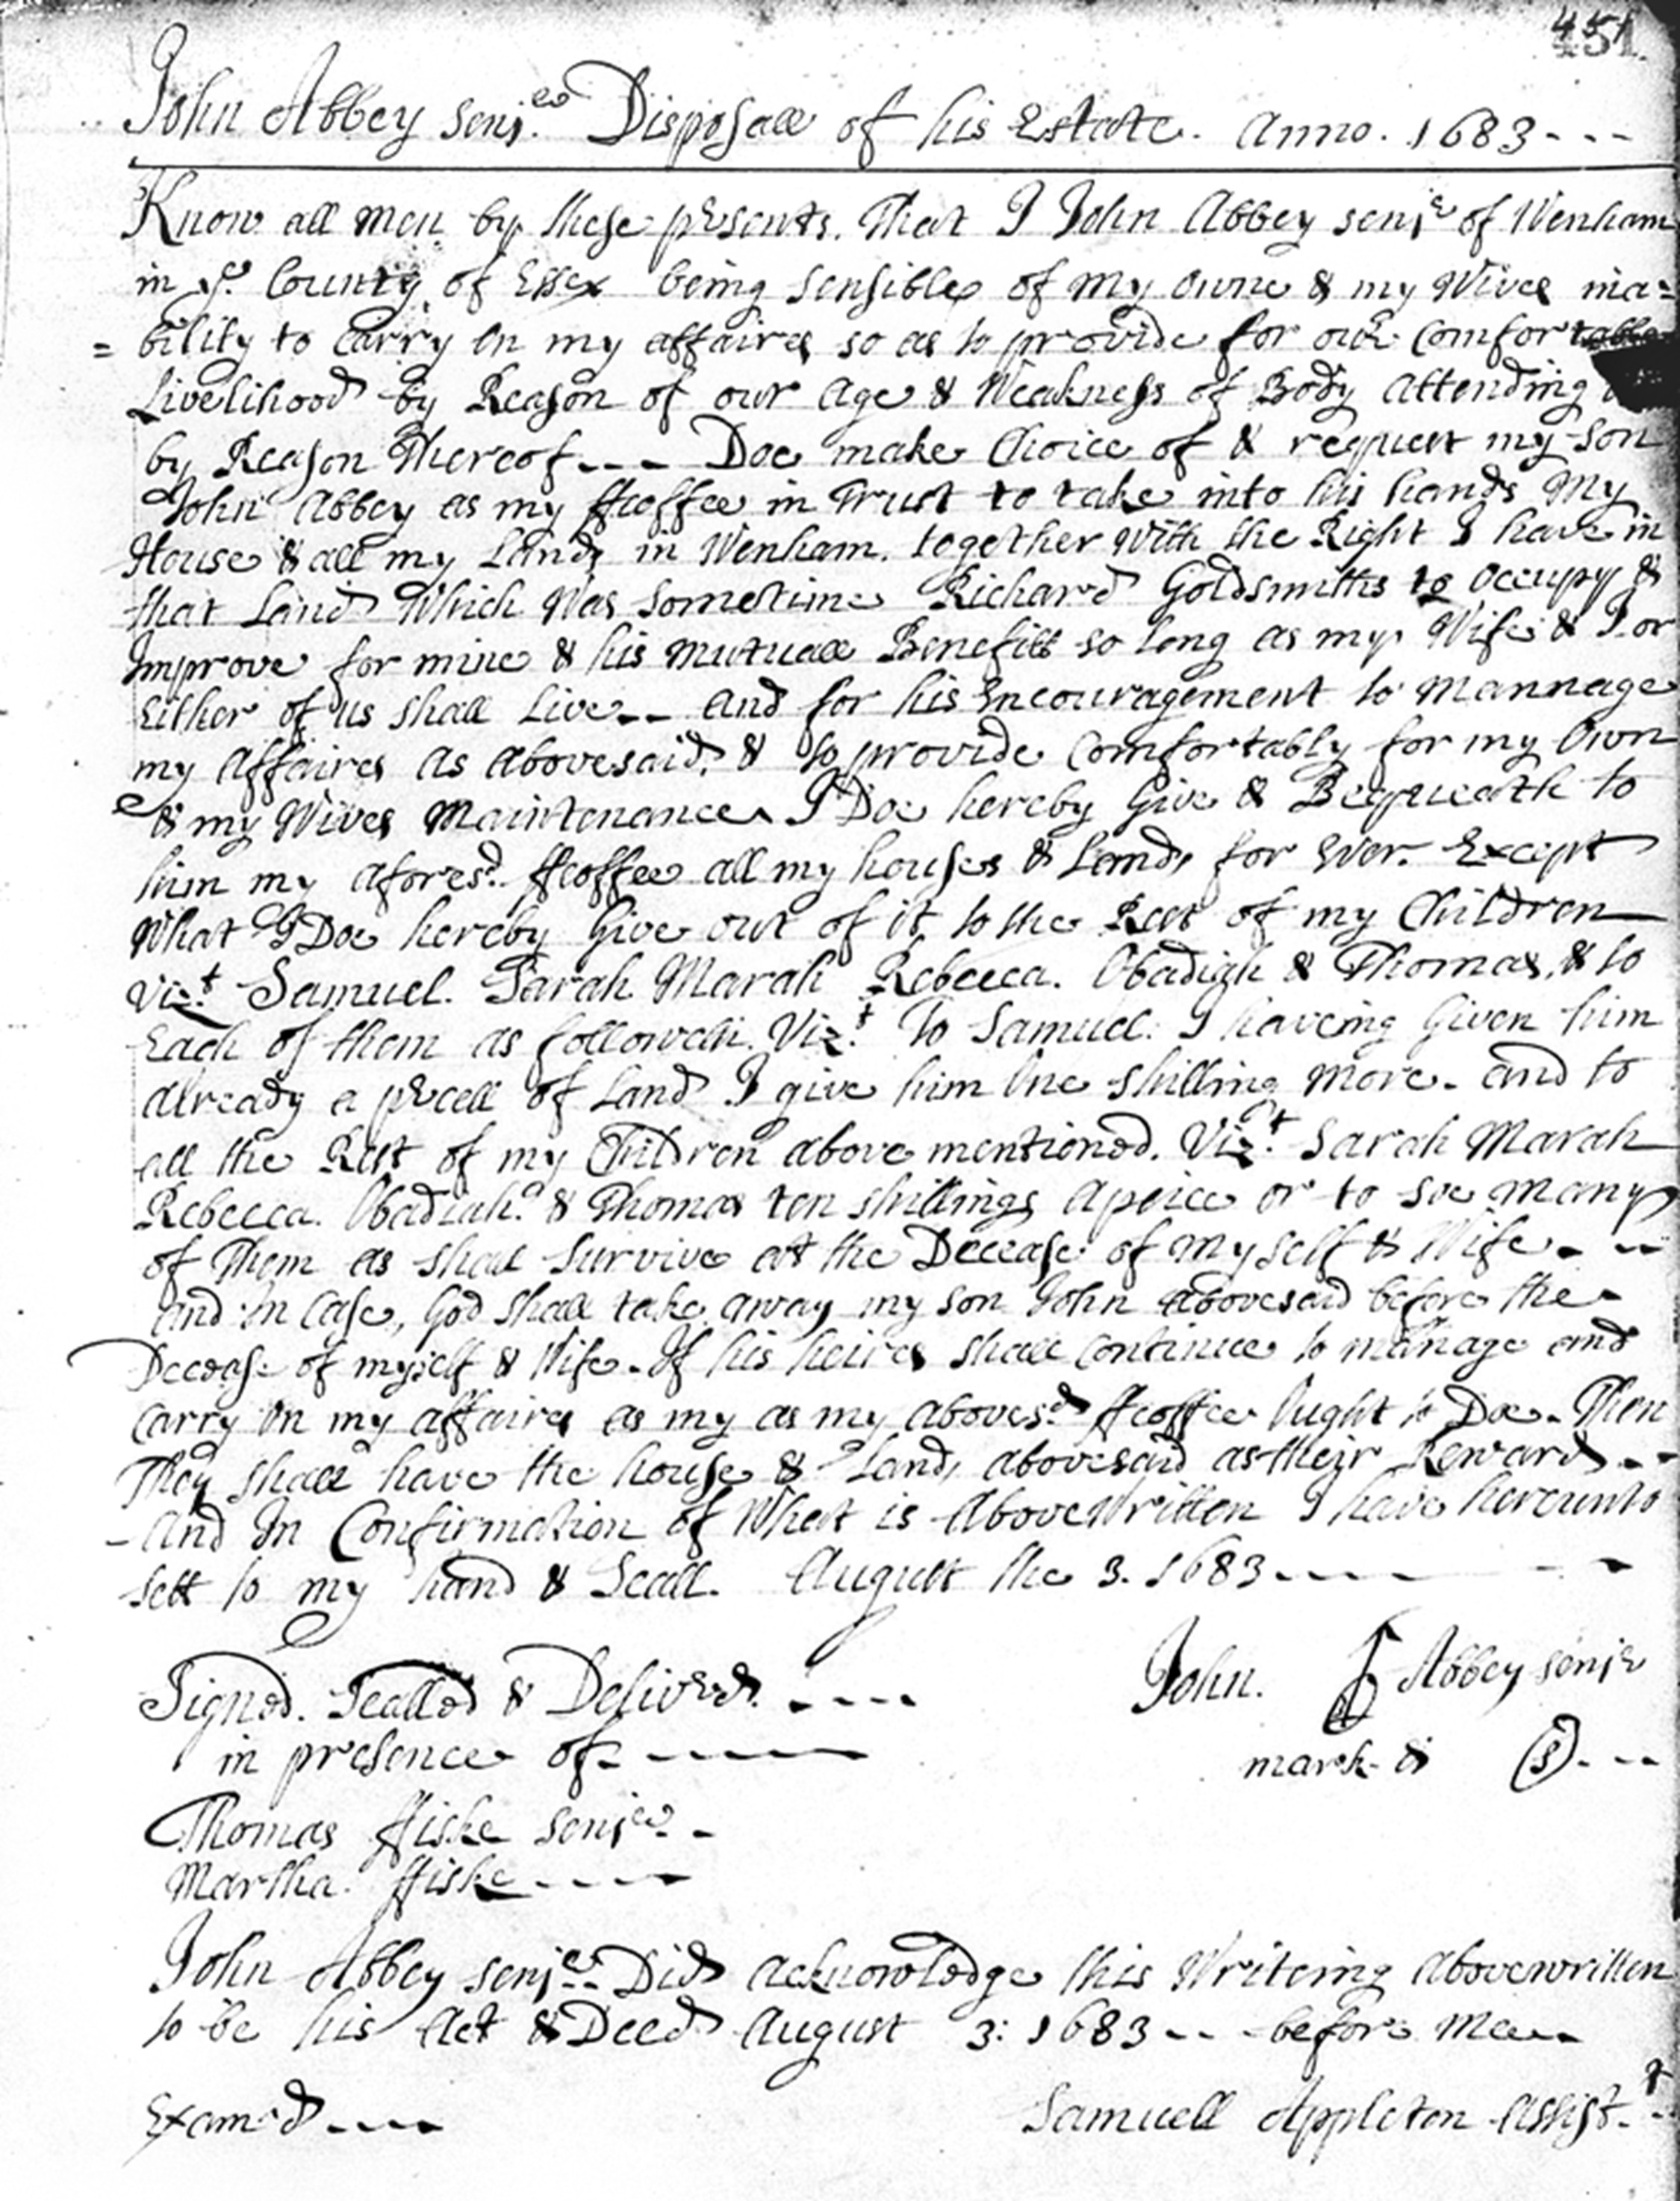 451
451.
John Abbey senj.er Disposall of his Estate. Anno. 1683---
Know all men by these prsents. That I John Abbey senjr of Wenham
in ye. County of Essex being sensible of my owne & my Wives ina=
= bility to carry on my affaires so as to provide for our Comfortable
Livelihood by Reason of our Age & Weakness of Body Attending
by Reason Thereof--- Doe make Choice of & request my son
John Abbey as my ffeoffee in Trust to take into his hands My
House & all my Lands in Wenham. together With the Right I have in
that Land Which Was Sometime Richard Goldsmiths to occupy &
Improve for mine & his Mutuall Benefitt so long as my Wife & I or
Either of us shall Live-- And for his Encouragement to Mannage
my Affaires As Abovesaid. & to provide Comfortably for my Own
& my Wives Maintenance I Doe hereby Give & Bequeath to
him my aforesd. ffeoffee all my houses & Lands for Ever. Except
What I Doe hereby Give out of it to the Rest of my Children
Vizt. Samuel. Sarah Marah Rebecca. Obadiah & Thomas, & to
Each of them as followeth. Vizt. To Samuel: I haveing Given him
already a prcell of Land I give him One shilling More- and to
all the Rest of my Children above mentioned. Vizt. Sarah Marah
Rebecca. Obadiah. & Thomas ten shillings Apeice or to soe many
of Them as shall Survive at the Decease of My self & Wife. --
And In Case, God shall take away my son John abovesaid before the
Decease of myself & Wife- If his heires shall Continue to manage and
Carry On my affaires as my as my abovesd. ffeoffee Ought to Doe. Then
They shall have the house & Lands abovesaid as their Reward --
- And In Confirmation of What is Above Written I have hereunto
sett to my hand & Seall. August the 3. 1683----
Signed. Sealled & Deliverd. ----
John. Abbey senjr
in presence of- ----
mark & (S). --
Thomas ffiske senjer. -
Martha. ffiske----
John Abbey senjer. Did Acknowledge this Writeing Abovewritten
to be his Act & Deed August 3: 1683-- -before Mee--
Examd----
Samuell Appleton Assistt.